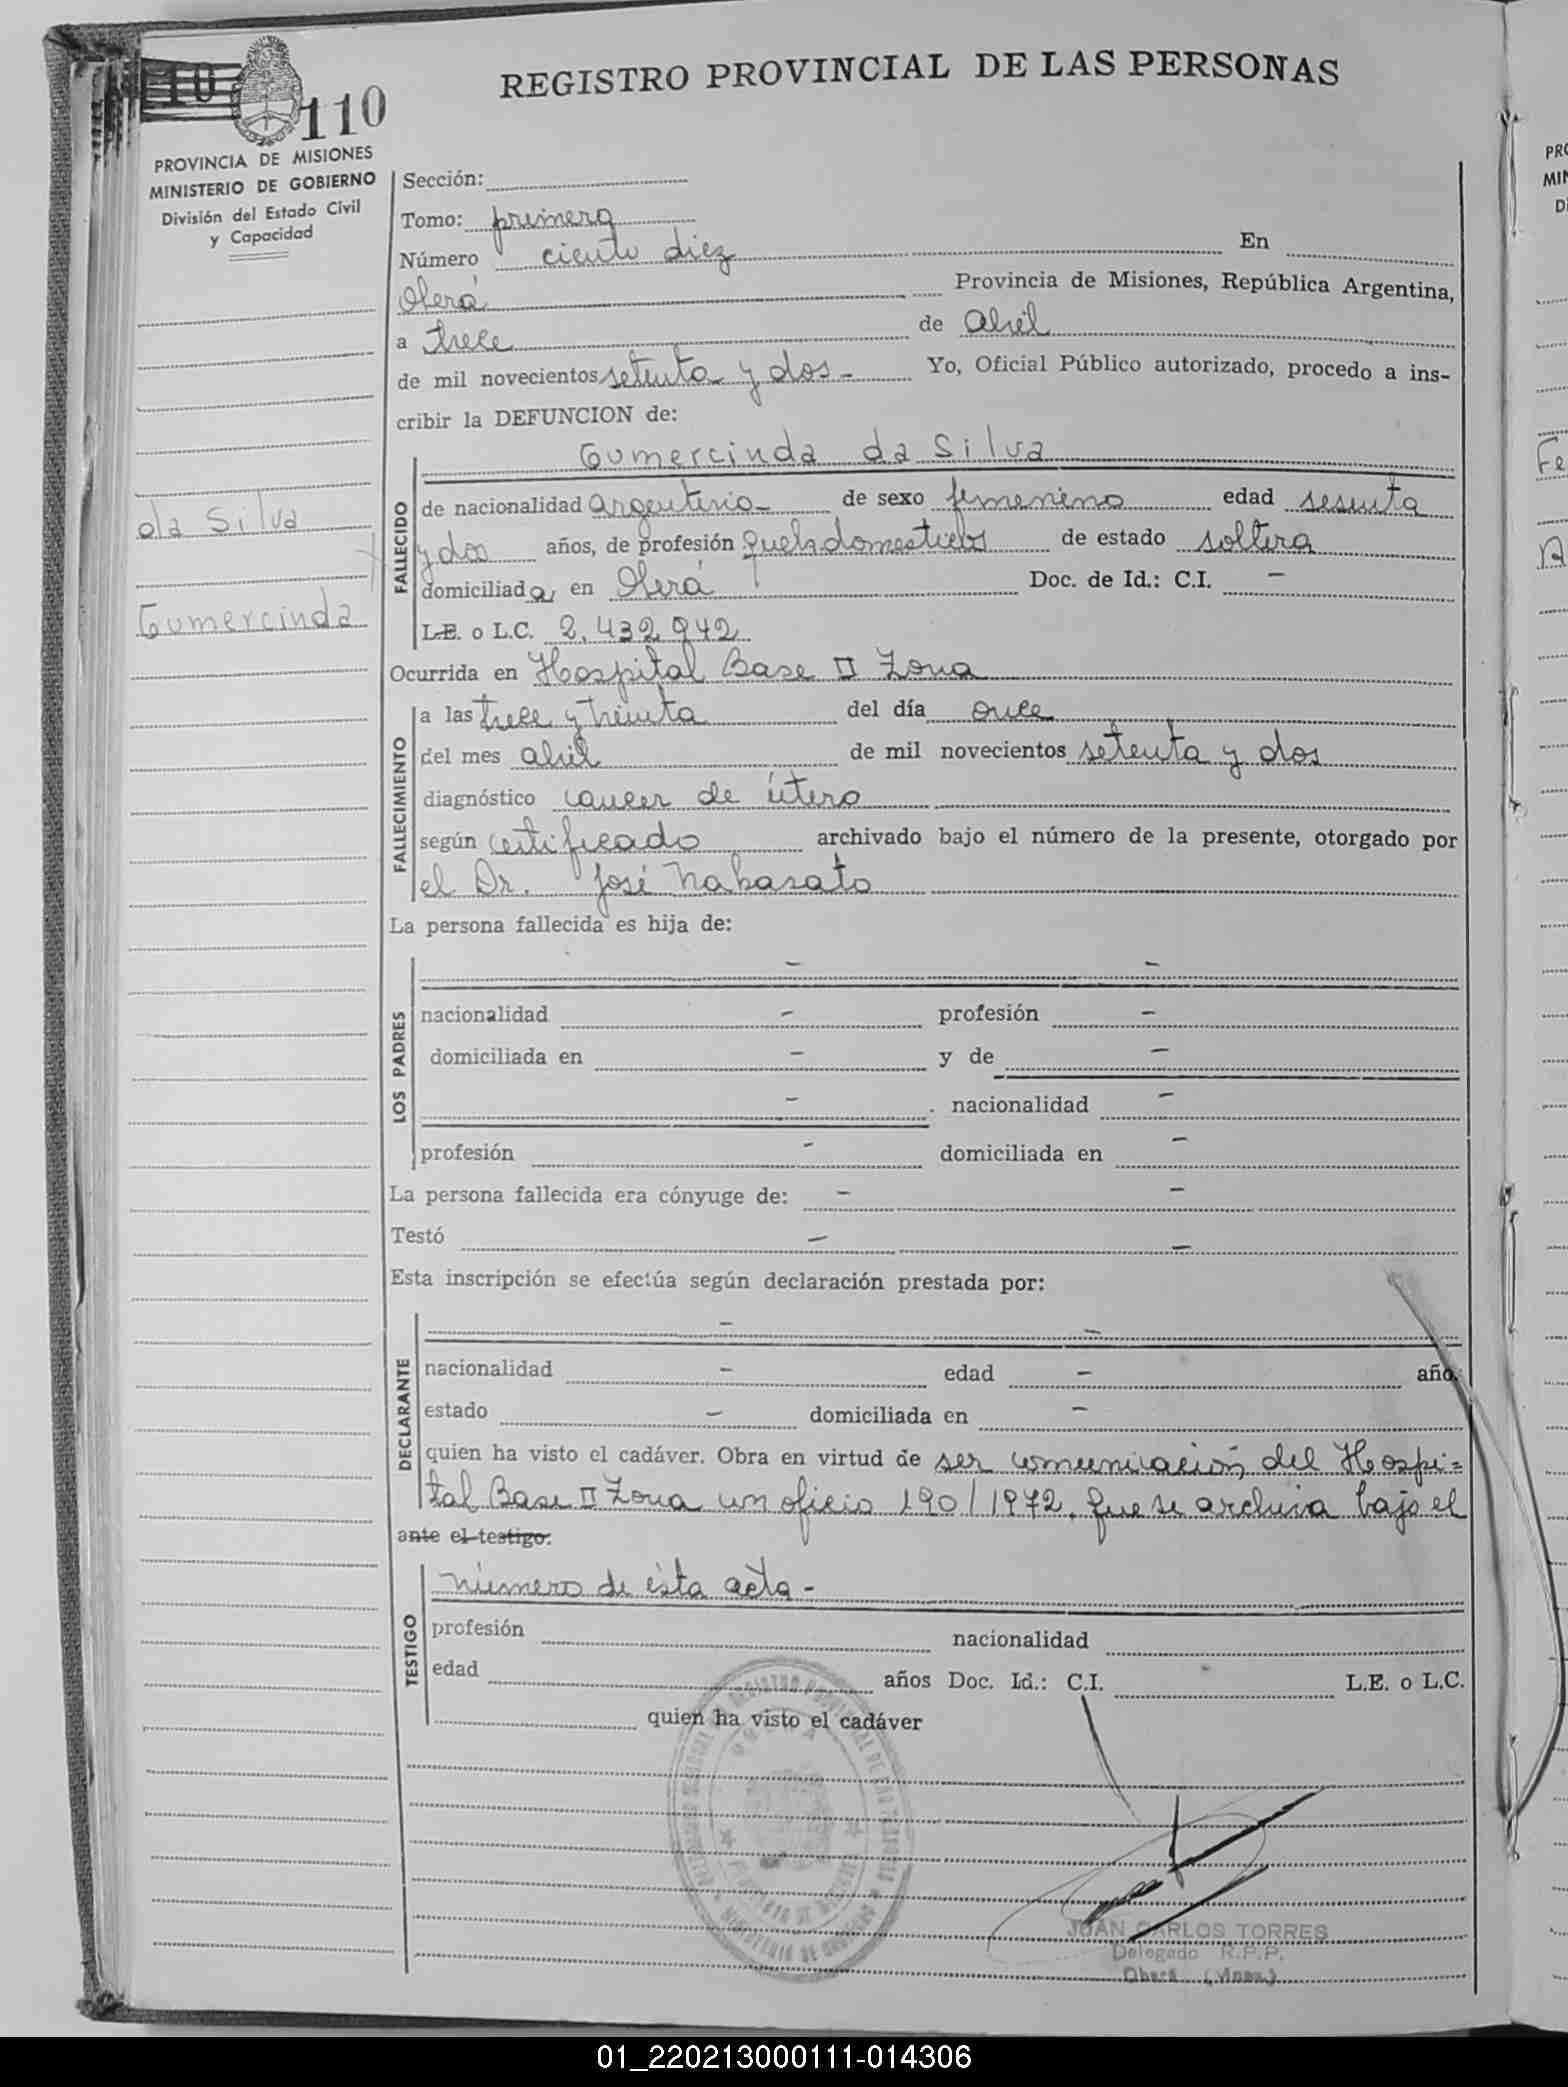 110
REGISTRO PROVINCIAL DE LAS PERSONAS
PROVINCIA DE MISIONES
MINISTERIO DE GOBIERNO
División del Estado Civil
y Capacidad
Sección:
Tomo: primero
Número ciento diez En
Oberá Provincia de Misiones, República Argentina,
a trece de abril
de mil novecientos setenta y dos - Yo, Oficial Público autorizado, procedo a ins-
cribir la DEFUNCION de:
Gumercinda da Silva
da Silva
Gumercinda
FALLECIDO
de nacionalidad argentina - de sexo femenino edad sesenta
y dos años, de profesión quehadomesticos de estado soltera
domiciliada, en Oberá Doc. de Id.: C.I. -
L.E. o L.C. 2.432.942
Ocurrida en Hospital Base II Zona
FALLECIMIENTO
a las trece y treinta del día once
del mes abril de mil novecientos setenta y dos
diagnóstico cancer de útero
según certificado archivado bajo el número de la presente, otorgado por
el Dr. José Nakasato
La persona fallecida es hija de:
LOS PADRES
- -
nacionalidad - profesión -
domiciliada en - y de -
- nacionalidad -
profesión - domiciliada en -
La persona fallecida era cónyuge de: - -
Testó - -
Esta inscripción se efectúa según declaración prestada por:
DECLARANTE
- -
nacionalidad - edad - año
estado - domiciliada en -
quien ha visto el cadáver. Obra en virtud de ser comunicación del Hospi=
tal Base II Zona un oficio 190/1972, que se archiva bajo el
ante el testigo.
TESTIGO
número de ésta acta -
profesión nacionalidad
edad años Doc. Id.: C.I. L.E. o L.C.
quien ha visto el cadáver
JUAN CARLOS TORRES
Delegado R.P.P.
Oberá (Mnes.)
01_220213000111-014306